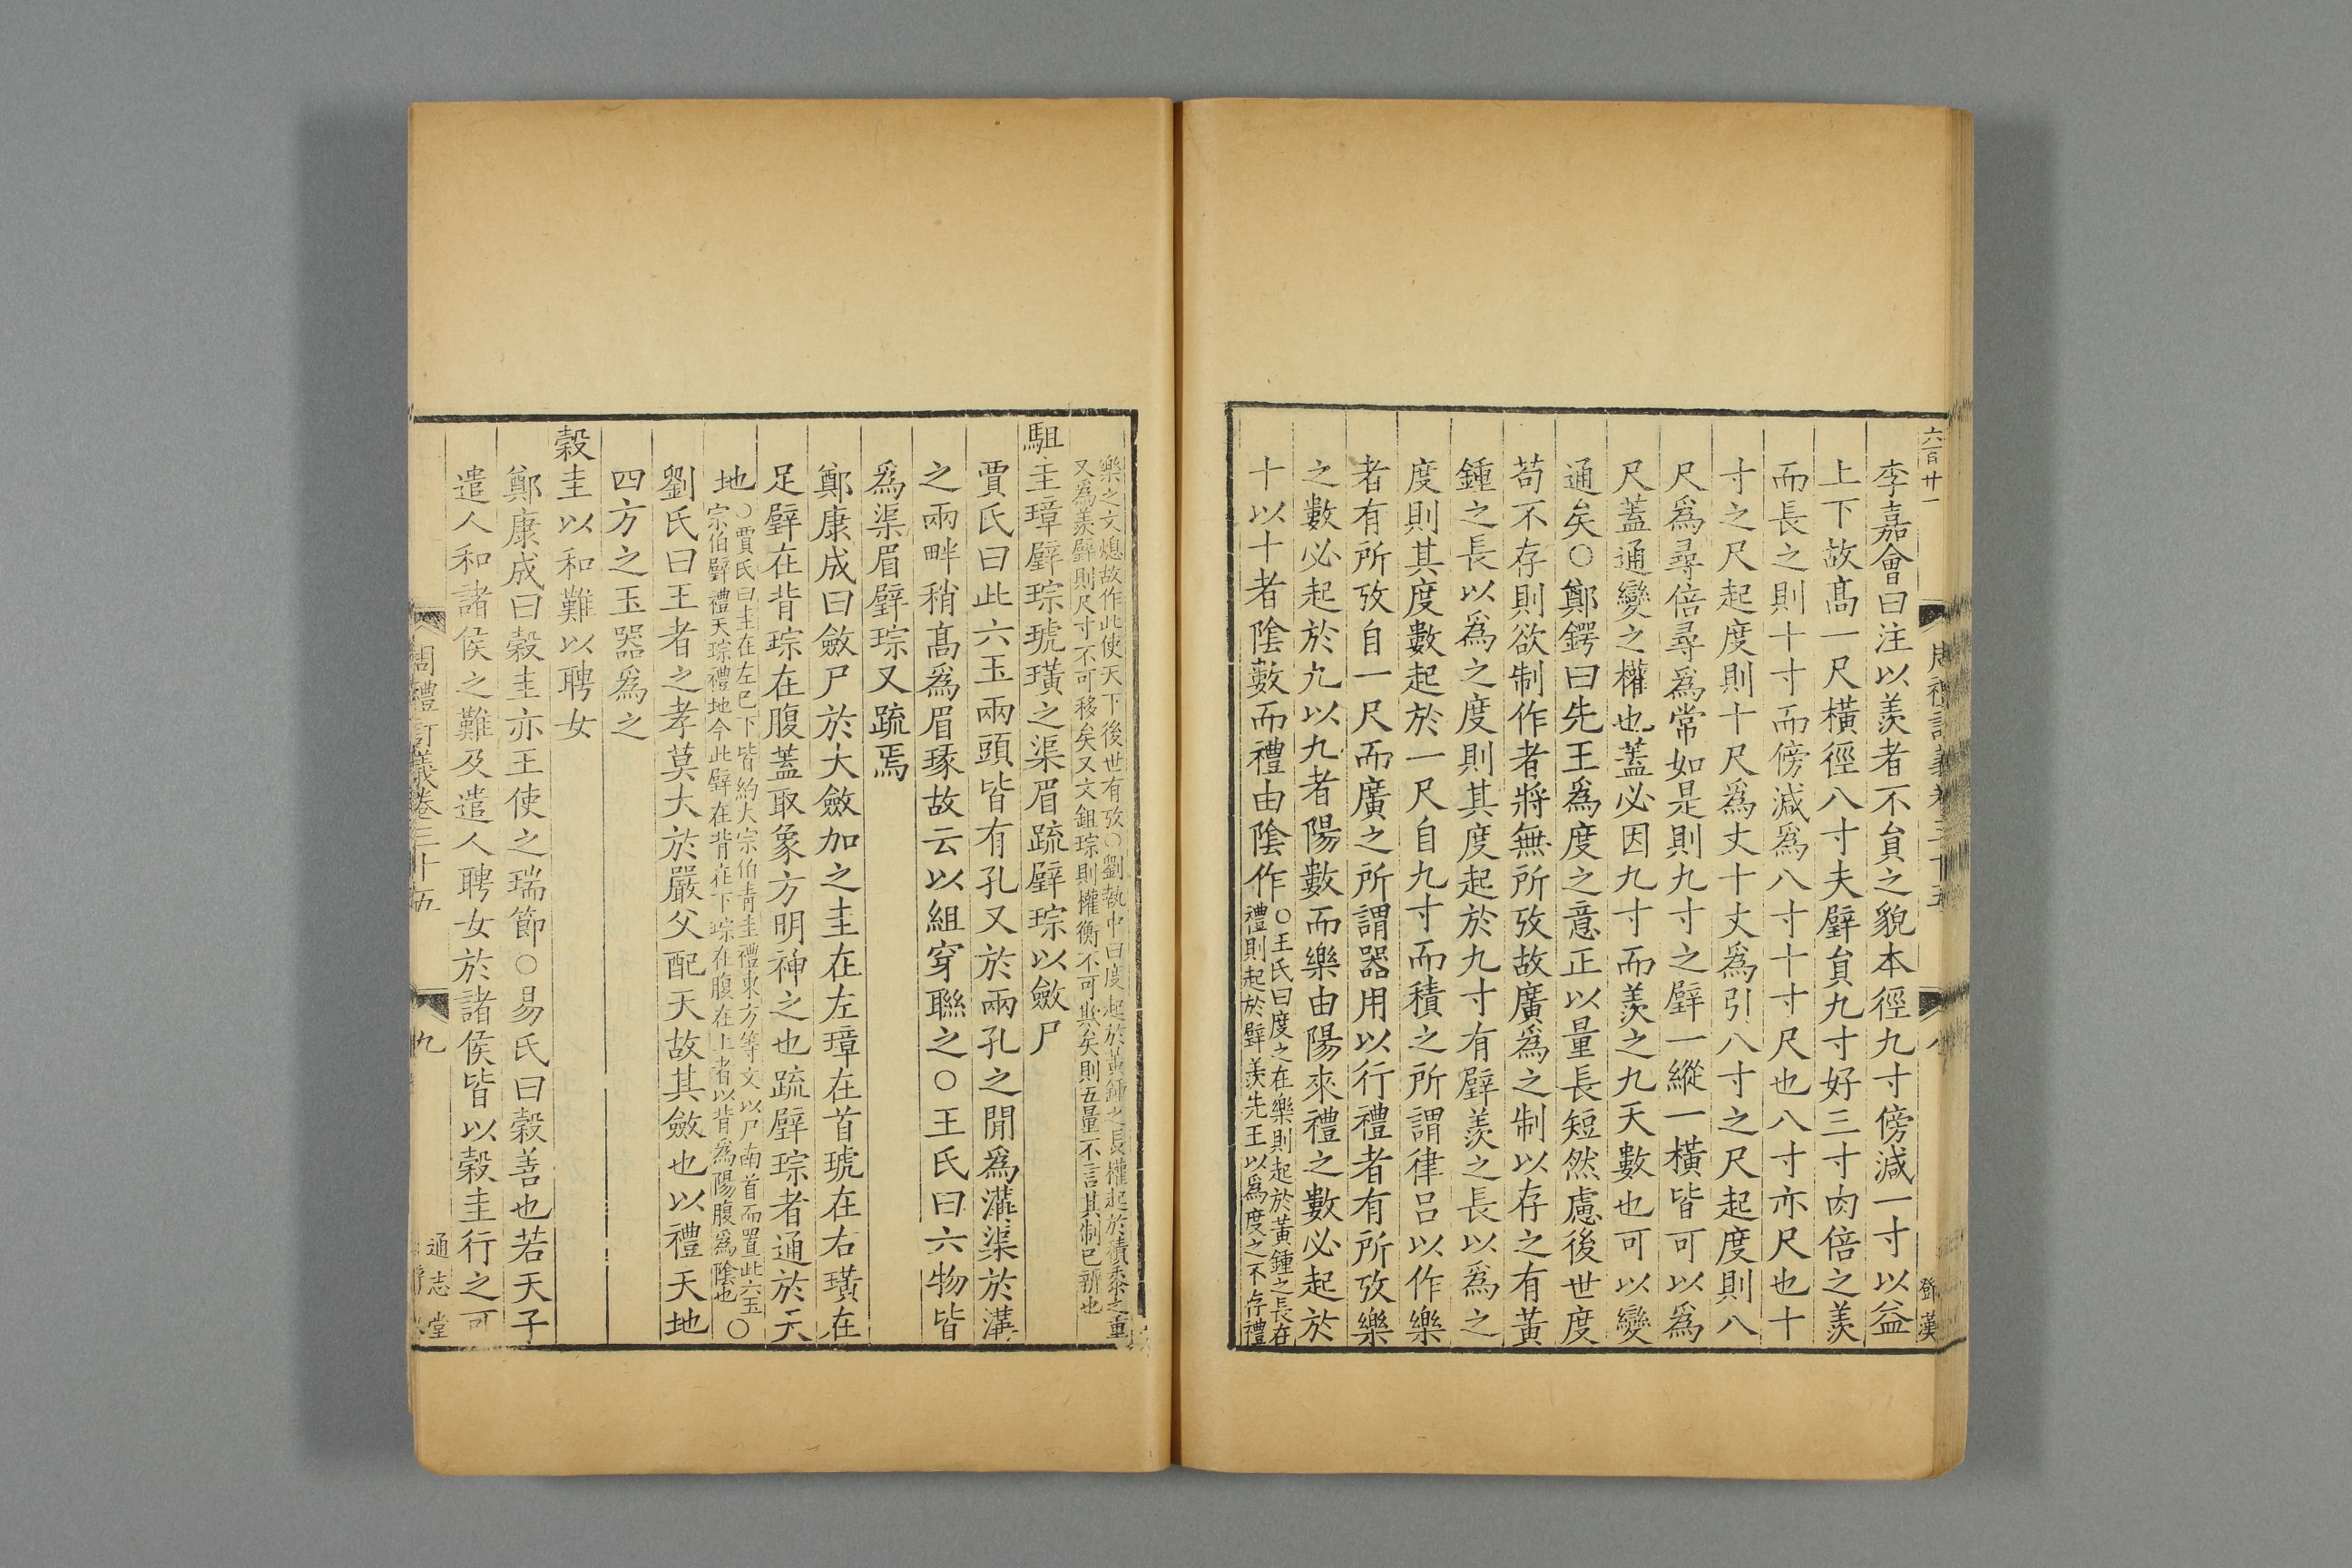 六百廿一
李嘉會曰注以羨者不貟之貌本徑九寸傍減一寸以益
上下故髙一尺橫徑八寸夫璧貟九寸好三寸肉倍之羨
而長之則十寸而傍減爲八寸十寸尺也八寸亦尺也十
寸之尺起度則十尺爲丈十丈爲引八寸之尺起度則八
尺爲尋倍尋爲常如是則九寸之璧一縱一橫皆可以爲
尺蓋通變之權也蓋必因九寸而羨之九天數也可以變
通矣○鄭鍔曰先王爲度之意正以量長短然慮後世度
苟不存則欲制作者將無所攷故廣爲之制以存之有黃
鍾之長以爲之度則其度起於九寸有璧羨之長以爲之
度則其度數起於一尺自九寸而積之所謂律呂以作樂
者有所攷自一尺而廣之所謂器用以行禮者有所攷樂
之數必起於九以九者陽數而樂由陽來禮之數必起於
十以十者隂數而禮由隂作○王氏曰度之在樂則起於黃鍾之長在
禮則起於璧羨先王以爲度之不存禮
鄧漢
樂之文熄故作此使天下後世有攷○劉執中曰度起於黃鍾之長權起於積黍之重
又爲羨璧則尺寸不可移矣又文鉏琮則權衡不可欺矣則五量不言其制已辨也
駔圭璋璧琮琥璜之渠眉疏璧琮以斂尸
賈氏曰此六玉兩頭皆有孔又於兩孔之閒爲溝渠於溝
之兩畔稍髙爲眉瑑故云以組穿聯之○王氏曰六物皆
爲渠眉璧琮又疏焉
鄭康成曰斂尸於大斂加之圭在左璋在首琥在右璜在
足璧在背琮在腹蓋取象方明神之也疏璧琮者通於天
地○賈氏曰圭在左已下皆約大宗伯靑圭禮東方等文以尸南首而置此六玉○
宗伯璧禮天琮禮地今此璧在背在下琮在腹在上者以背爲陽腹爲隂也
劉氏曰王者之孝莫大於嚴父配天故其斂也以禮天地
四方之玉器爲之
穀圭以和難以聘女
鄭康成曰穀圭亦王使之瑞節○易氏曰穀善也若天子
遣人和諸侯之難及遣人聘女於諸侯皆以穀圭行之可
周禮訂義卷三十五
九
通志堂